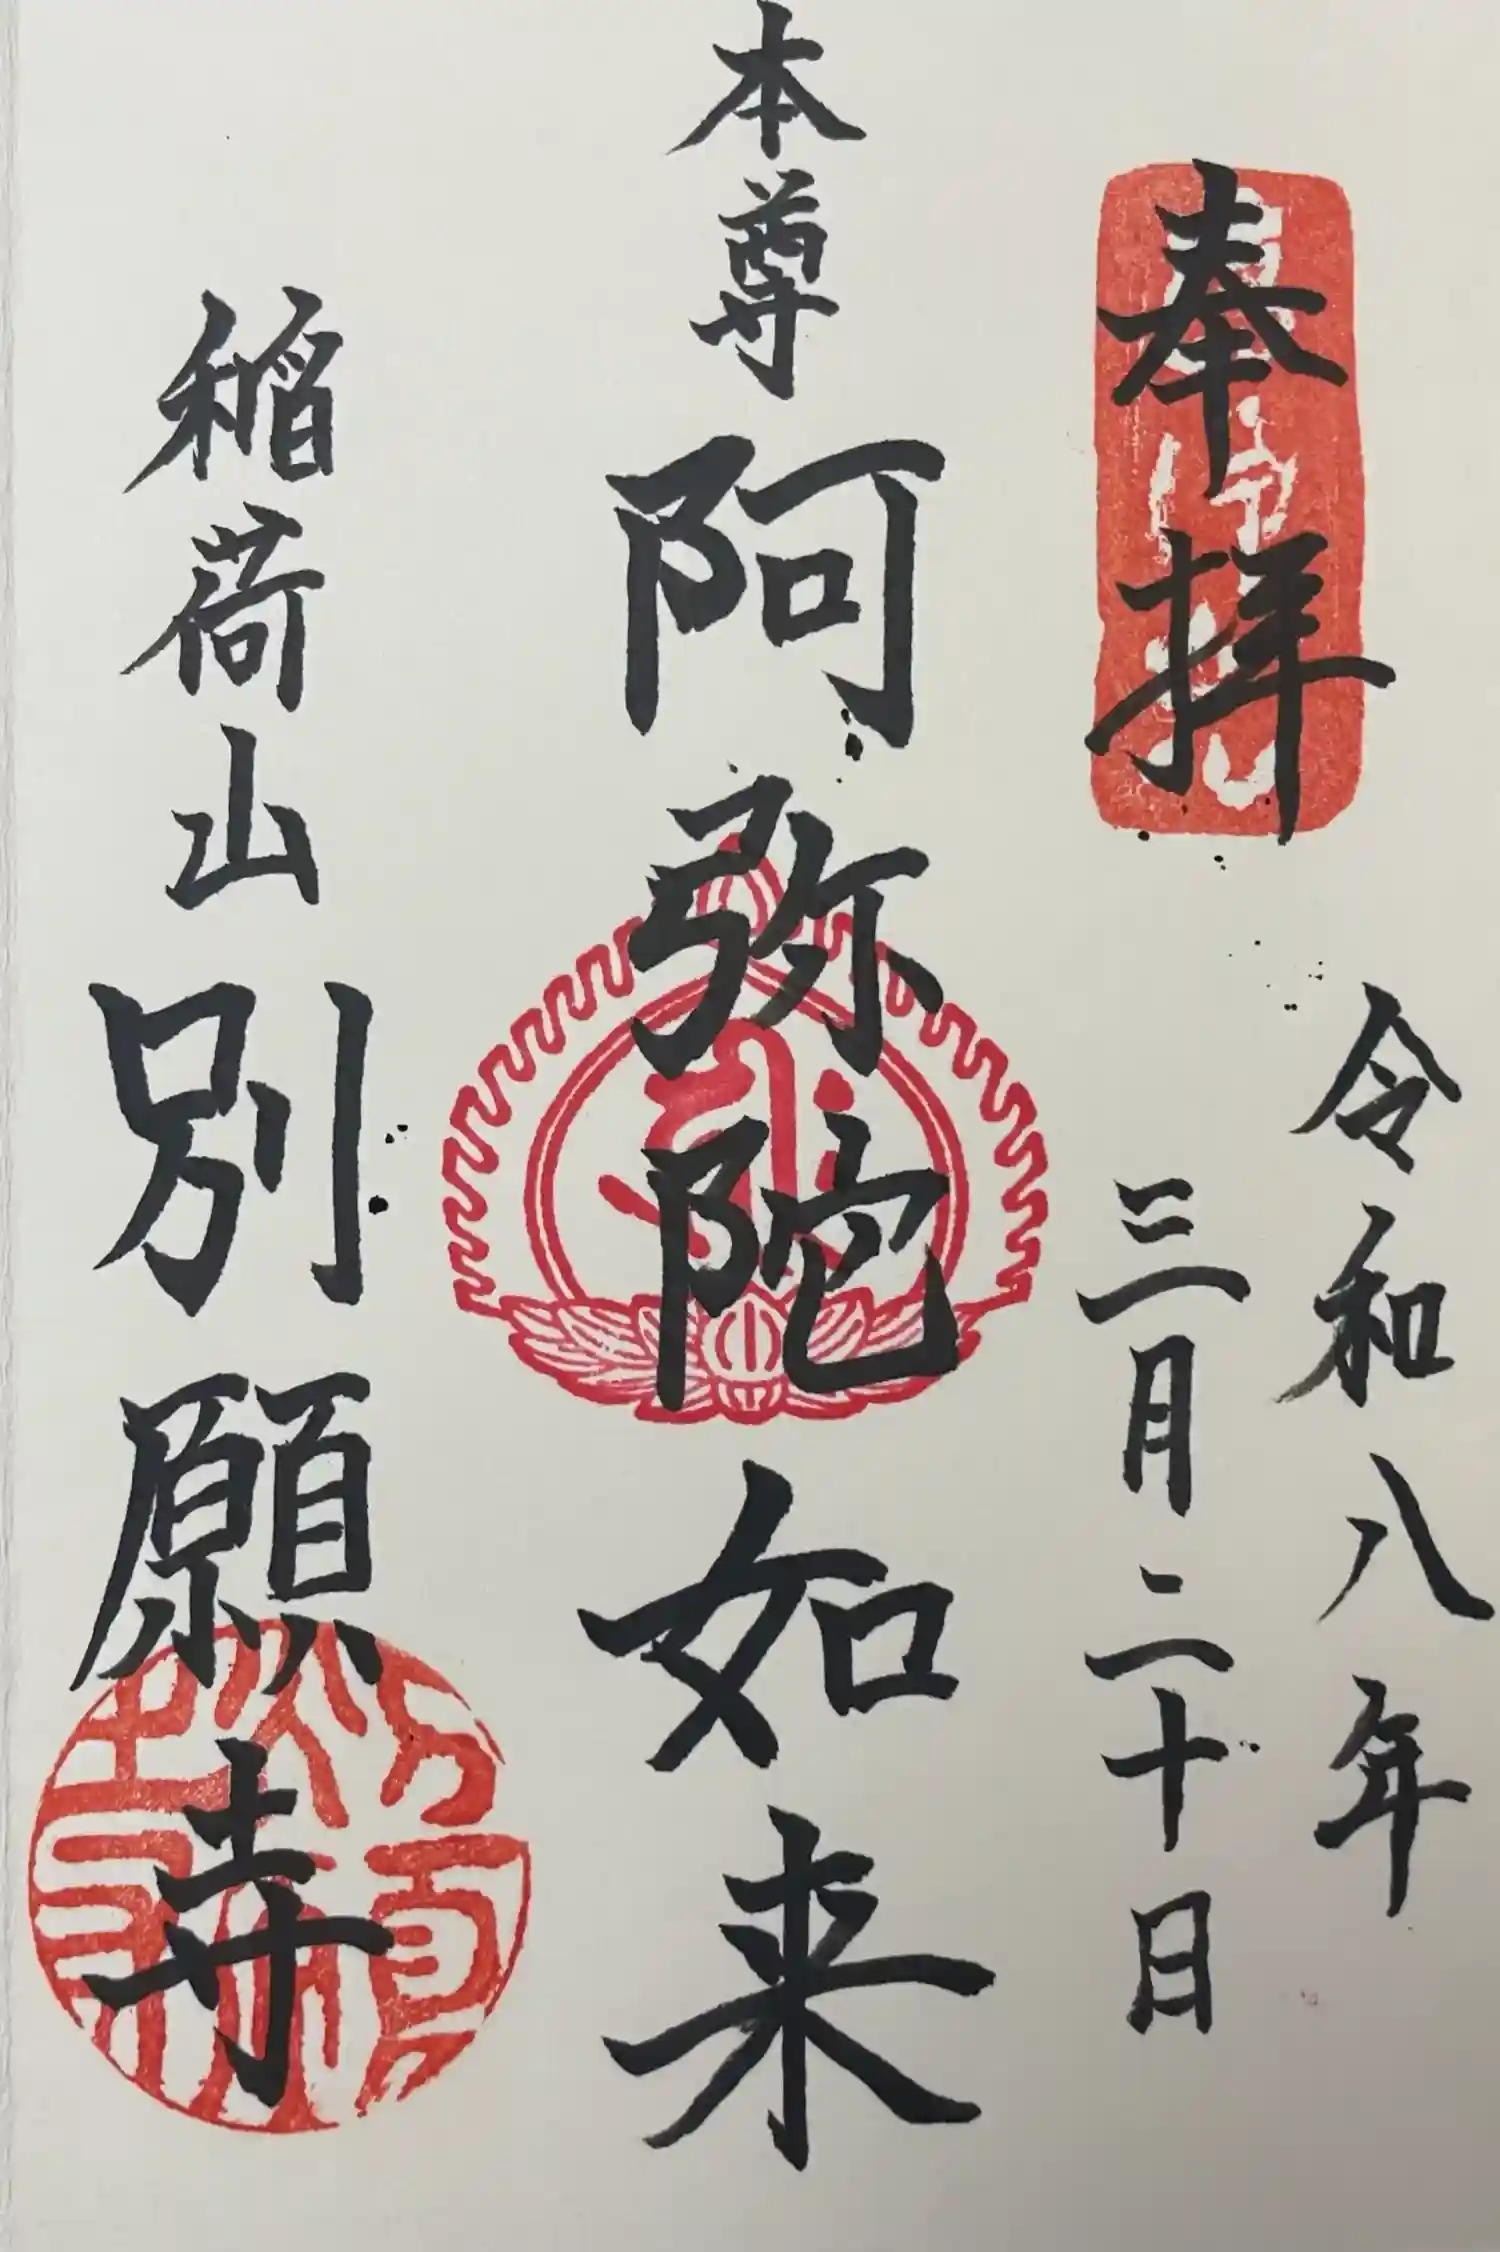 奉拝
令和八年
三月二十日
本尊 阿弥陀如来
稲荷山 別願寺